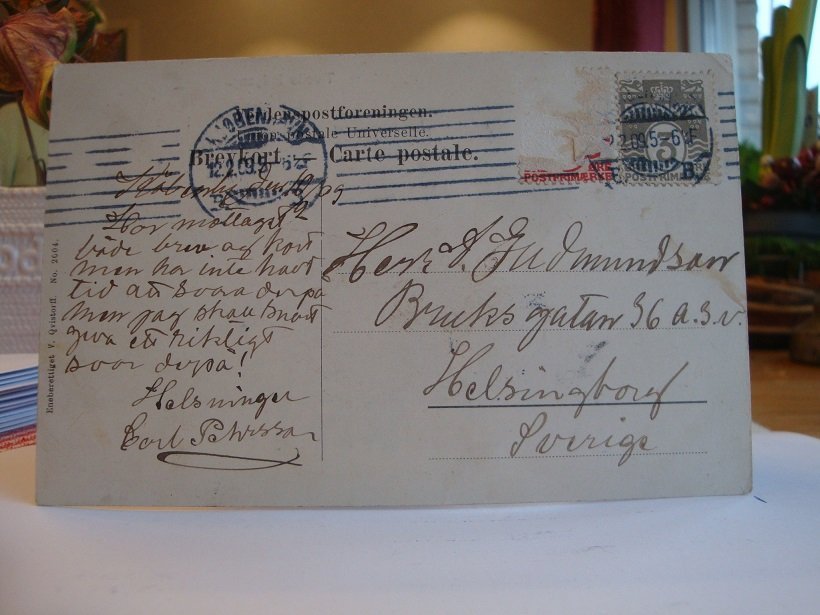 Verdenspostforeningen.
Union Postale Universelle.
Brevkort. — Carte postale.
KJØBEN
12.2.09. 5-6E
B
3
POSTFRIMÆRKE
ØRE
POSTFRIMÆRKE
2.09. 5-6E
B
den 12/2 09
Har mottaget
både brev og kort
men har inte haft
tid att svara derpå
Men jag skall snart
giva ett riktigt
svar derpå!
Helsninger
Carl Petersson
Herr A. Gudmundson
Bruksgatan 36 a.3.v.
Helsingborg
Sverige
Eneberettiget V. Qvistorff. No. 2004.